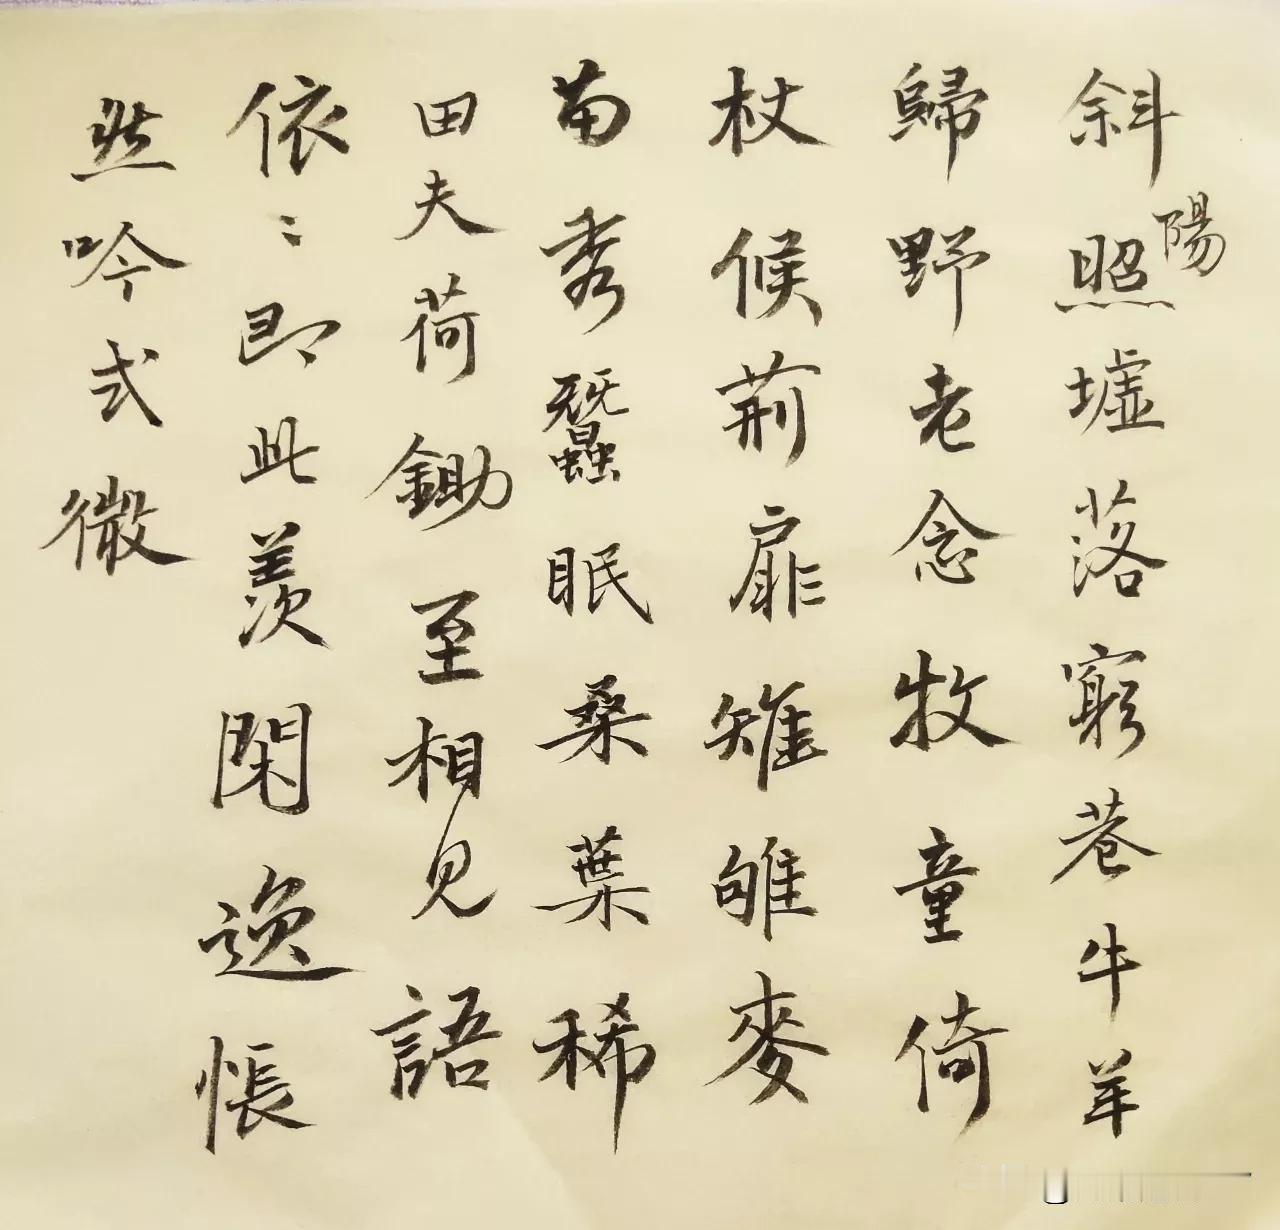 斜陽照墟落窮巷牛羊
歸野老念牧童倚
杖候荊扉雉雊麥
苗秀蠶眠桑葉稀
田夫荷鋤至相見語
依〻即此羨閑逸悵
然吟式微